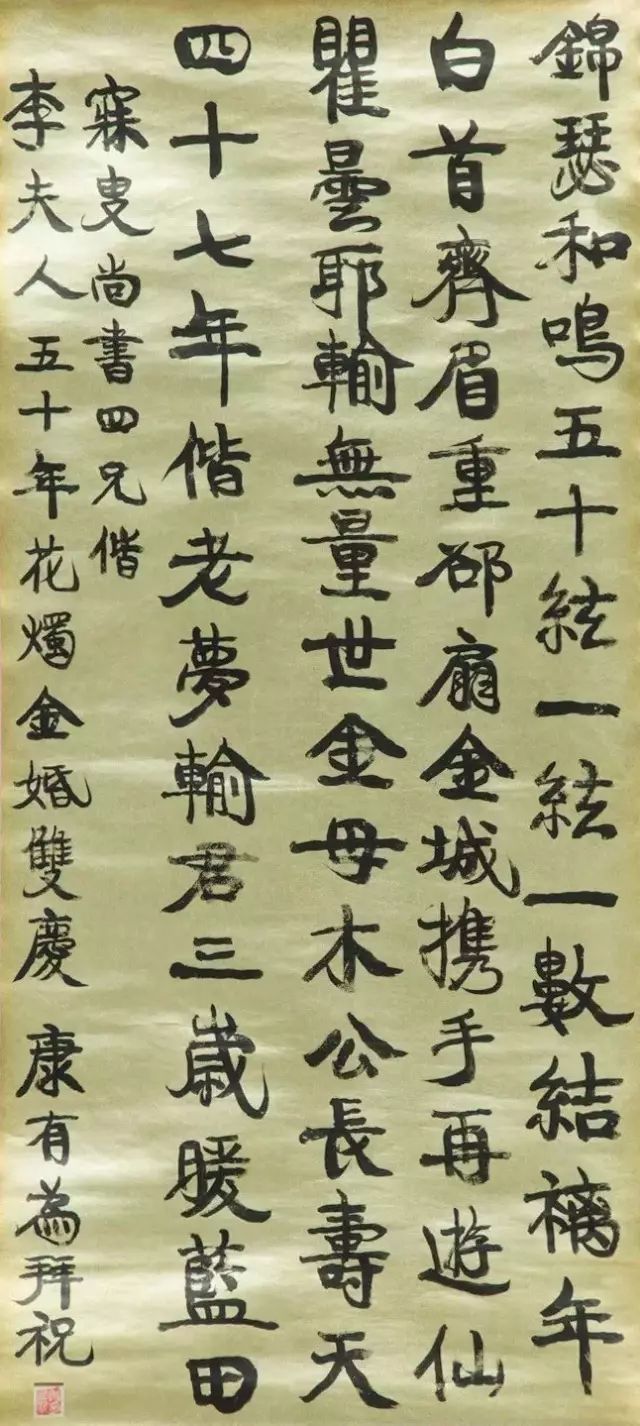 錦瑟和鳴五十絃一絃一數結褵年
白首齊眉重卻扇金城携手再遊仙
瞿曇耶輸無量世金母木公長壽天
四十七年偕老夢輸君三歲暖藍田
寐叟尚書四兄偕
李夫人五十年花燭金婚雙慶 康有為拜祝